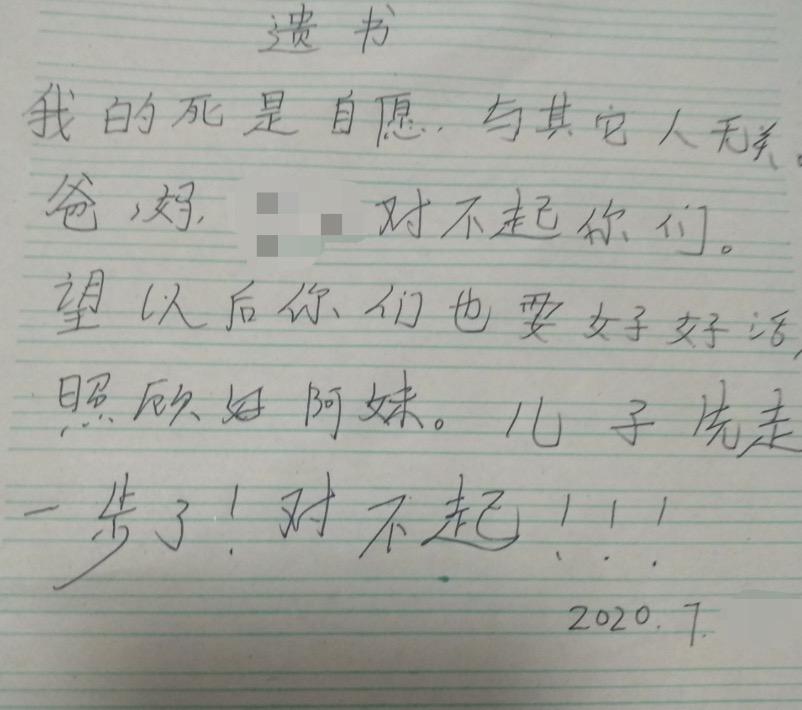 遗书
我的死是自愿，与其它人无关。
爸，妈， 对不起你们。
望以后你们也要好好活，
照顾好阿妹。儿子先走
一步了！对不起！！！
2020.7.